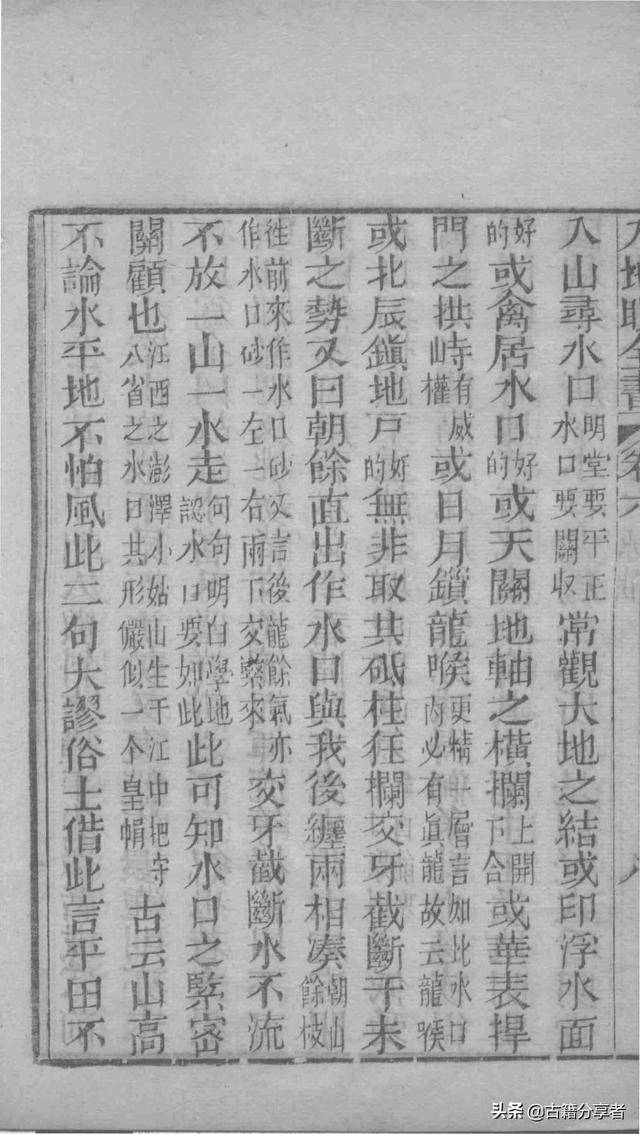 入山尋水口明堂要平正水口要關収常觀大地之結或印浮水面
好的或禽居水口好的或天關地軸之橫攔上開下合或華表捍
門之拱峙有威權或日月鎖龍喉更精一層言如此水口內必有眞龍故云龍喉
或北辰鎮地戶好的無非取其砥柱狂攔交牙截斷于未
斷之勢又曰朝餘直出作水口與我後纏兩相湊朝山餘枝
徃前來作水口砂又言後龍餘氣亦作水口砂一左一右兩下交藂來交牙截斷水不流
不放一山一水走何句明白學地認水口要如此此可知水口之緊密
關顧也江西之澎澤小姑山生于江中把守八省之水口其形儼似一个皇帽古云山高
不論水平地不怕風此二句大謬俗士借此言平田不
大地 全書 卷六
八
头条@古籍分享者